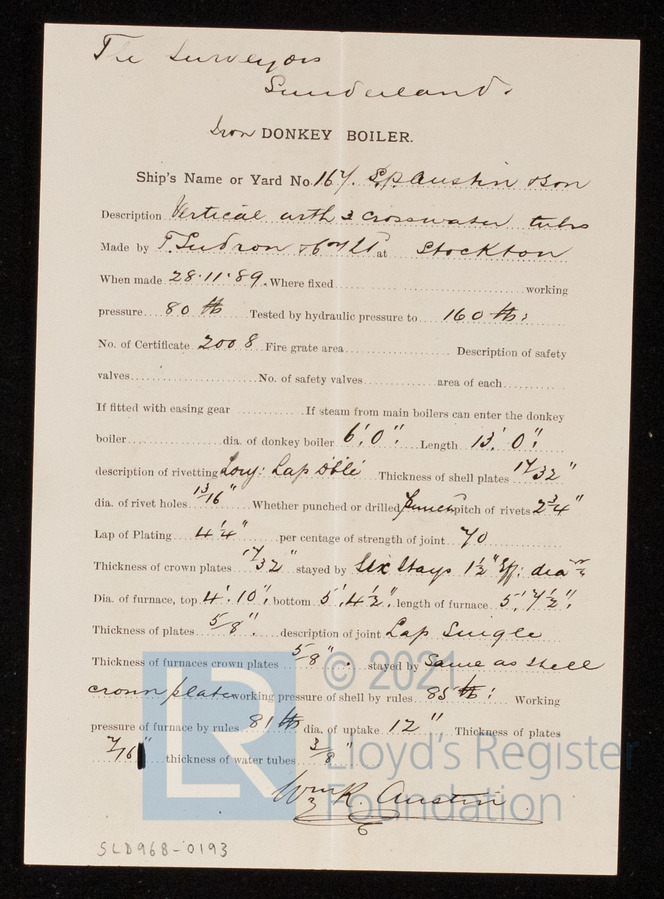 The Surveyors
Sunderland.
Iron DONKEY BOILER.
Ship's Name or Yard No. 167. S.P. Austin & Son
Description Vertical with 3 cross water tubes
Made by T. Sudron & Co Ld at Stockton
When made 28.11.89. Where fixed working
pressure 80 lb Tested by hydraulic pressure to 160 lb:
No. of Certificate 2008 Fire grate area Description of safety
valves No. of safety valves area of each
If fitted with easing gear If steam from main boilers can enter the donkey
boiler dia. of donkey boiler 6'.0". Length 13'.0".
description of rivetting Long: Lap Dble Thickness of shell plates 17/32"
dia. of rivet holes 13/16" Whether punched or drilled Punch pitch of rivets 2 3/4"
Lap of Plating 4 1/4" per centage of strength of joint 70
Thickness of crown plates 17/32" stayed by Six Stays 1 1/2" Eff: dia
Dia. of furnace, top 4'.10". bottom 5'.4 1/2". length of furnace 5'.7 1/2".
Thickness of plates 5/8". description of joint Lap Single
Thickness of furnaces crown plates 5/8". stayed by Same as shell
crown plates working pressure of shell by rules 85 lb: Working
pressure of furnace by rules 81 lb dia. of uptake 12" Thickness of plates
7/16" thickness of water tubes 3/8"
Wm R. Austin
SLD968-0193
© 2021
LR
Lloyd's Register
Foundation